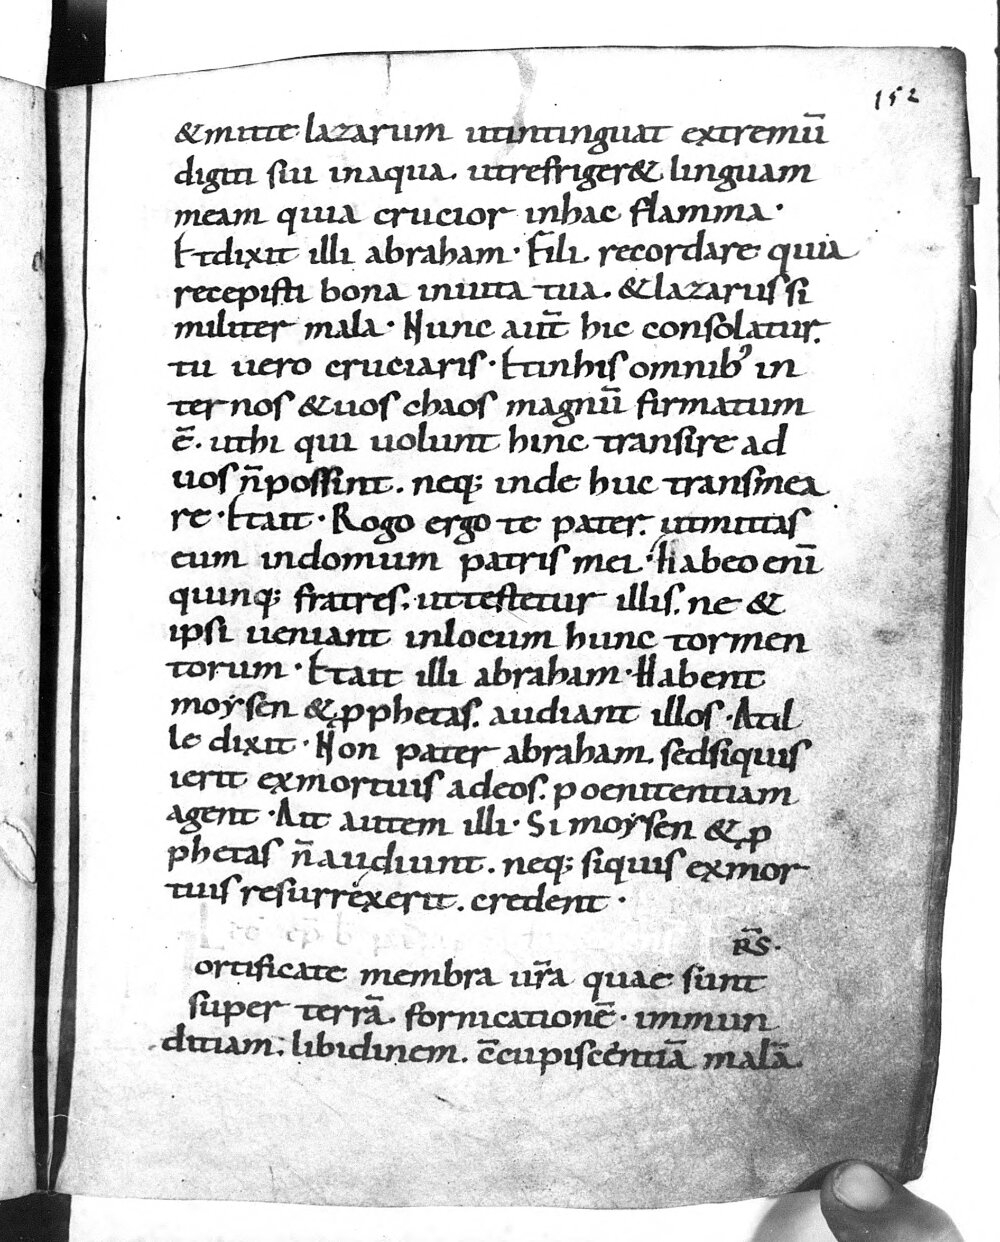 152
&mitte lazarum utintinguat extremū
digiti sui inaqua. utrefriger& linguam
meam quia crucior inhac flamma·
Etdixit illi abraham· Fili. recordare quia
recepisti bona inuita tua. &lazarus si
militer mala· Nunc aut̄ hic consolatur.
tu uero cruciaris· Etinhis omnibꝰ in
ter nos &uos chaos magnū firmatum
ē. uthi qui uolunt hinc transire ad
uos n̄possint. neq; inde huc transmea
re· Etait· Rogo ergo te pater. utmittas
eum indomum patris mei· Habeo eni̅
quinq; fratres. uttestetur illis. ne &
ipsi ueniant inlocum hunc tormen
torum· Etait illi abraham· Habent
moẏsen &ꝓphetas. audiant illos· Atil
le dixit· Non pater abraham. sedsiquis
ierit exmortuis adeos. poenitentiam
agent· Ait autem illi· Si moẏsen &ꝓ
phetas n̄audiunt. neq; siquis exmor
tuis resurrexerit. credent·
R̄S·
ortificate membra ur̄a quae sunt
super terrā. fornicationē· immun
ditiam. libidinem. c̄cupiscentiā malā.